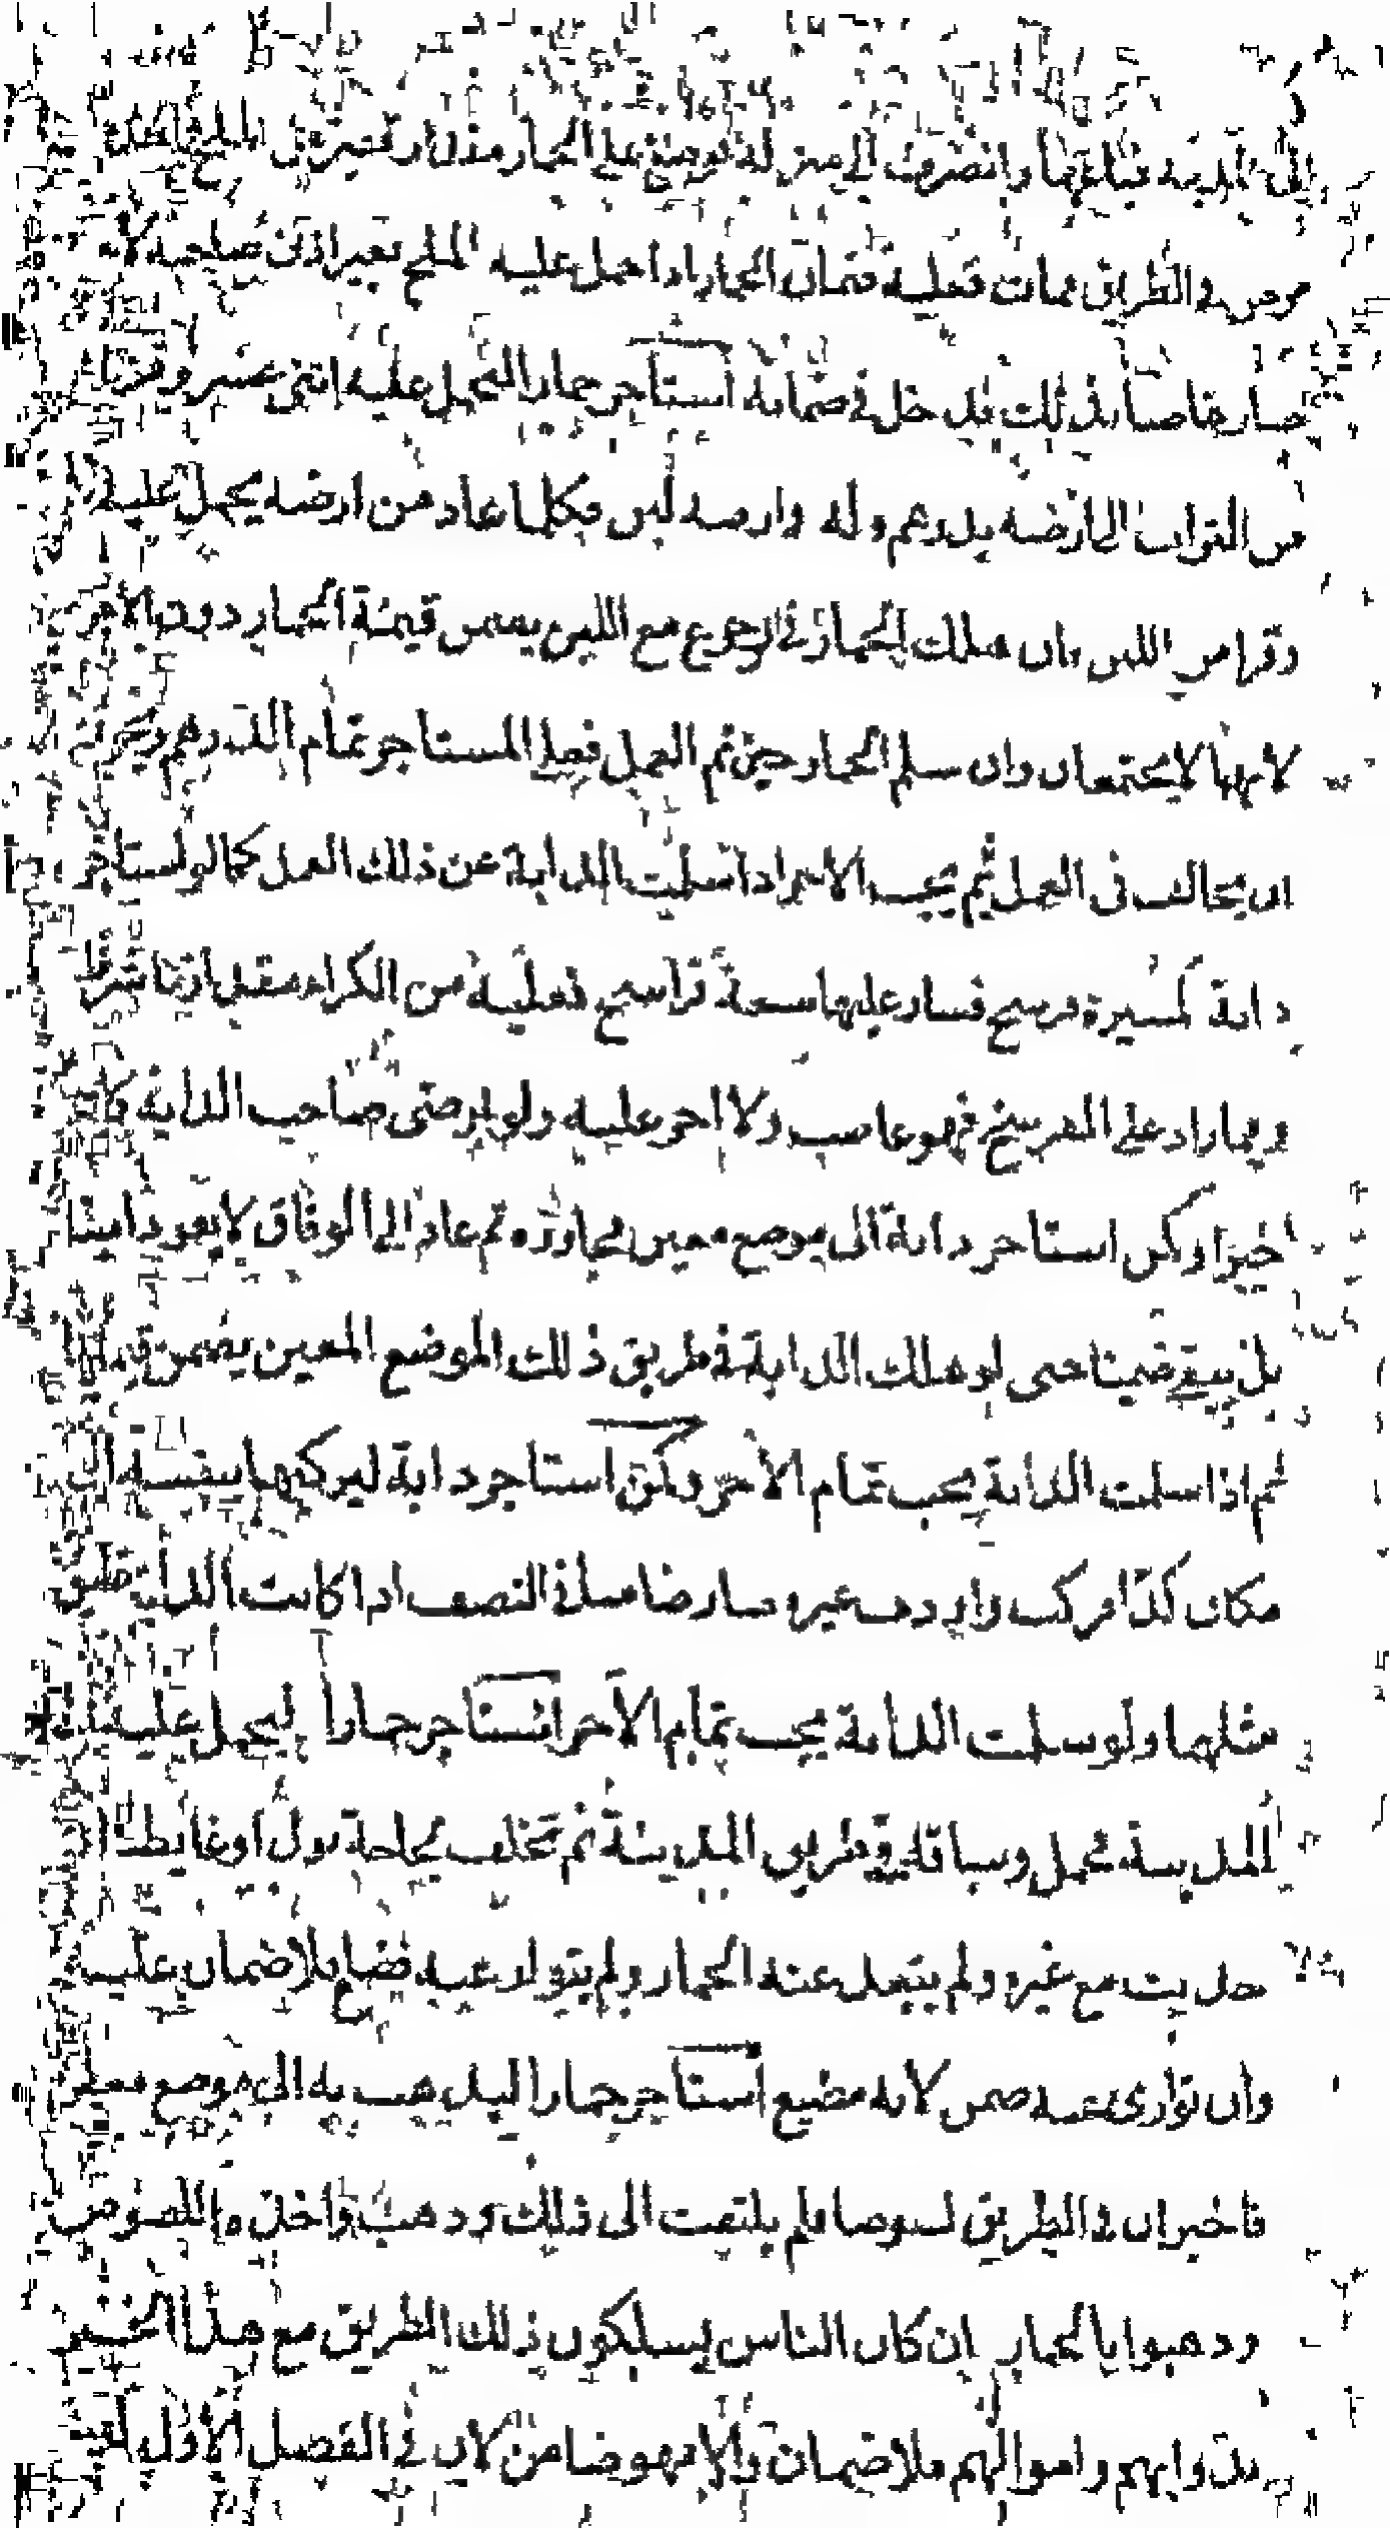 الى المدينة فباعها وانصرف الى منزله فوضع على الحمار قفيز من الملح
مرض في الطريق فمات فعليه ضمان الحمار اذا حمل عليه الملح بغير اذن صاحبه لانه
صار غاصبا بذلك فدخل في ضمانه استاجر حمارا ليحمل عليه اثنى عشر وقرا
من التراب الى ارضه بدرهم وله في ارضه لبن فكلما عاد من ارضه يحمل عليه
وقرا من اللبن فان هلك الحمار في الرجوع مع اللبن يضمن قيمة الحمار دون الاجر
لانهما لا يجتمعان وان سلم الحمار حين تم العمل فعلى المستاجر تمام الدرهم
ان يخالف في العمل ثم يجب الاجر اذا سلمت الدابة عن ذلك العمل كما لو استاجر
دابة لمسيرة فرسخ فسار عليها سبعة فراسخ فعليه من الكراء مقدار ما شرط
وفيما زاد على الفرسخ فهو غاصب ولا اجر عليه ولو لم يرضى صاحب الدابة
اخيرا وكمن استاجر دابة الى موضع معين فجاوزه ثم عاد الى الوفاق لا يعود امينا
بل يبقى ضمينا حتى لو هلك الدابة في طريق ذلك الموضع المعين يضمن قيمتها
ثم اذا سلمت الدابة يجب تمام الاجر وكمن استاجر دابة ليركبها بنفسه الى
مكان كذا فركب واردف غيره صار ضامنا في النصف اذا كانت الدابة تطيق
مثلهما ولو سلمت الدابة يجب تمام الاجر استاجر حمارا ليحمل عليه الى
المدينة فحمل وساقه في طريق المدينة ثم تخلف لحاجة بول او غايط او
حديث مع غيره ولم يبعد عنه الحمار ولم يتوار عنه فضاع لا ضمان عليه
وان توارى عنه ضمن لانه مضيع استاجر حمارا ليذهب به الى موضع معلوم
فاخبر ان في الطريق لصوصا فلم يلتفت الى ذلك وذهب واخذه اللصوص
وذهبوا بالحمار ان كان الناس يسلكون ذلك الطريق مع هذا الخبر
بدوابهم واموالهم فلا ضمان والا فهو ضامن لان في الفصل الاول